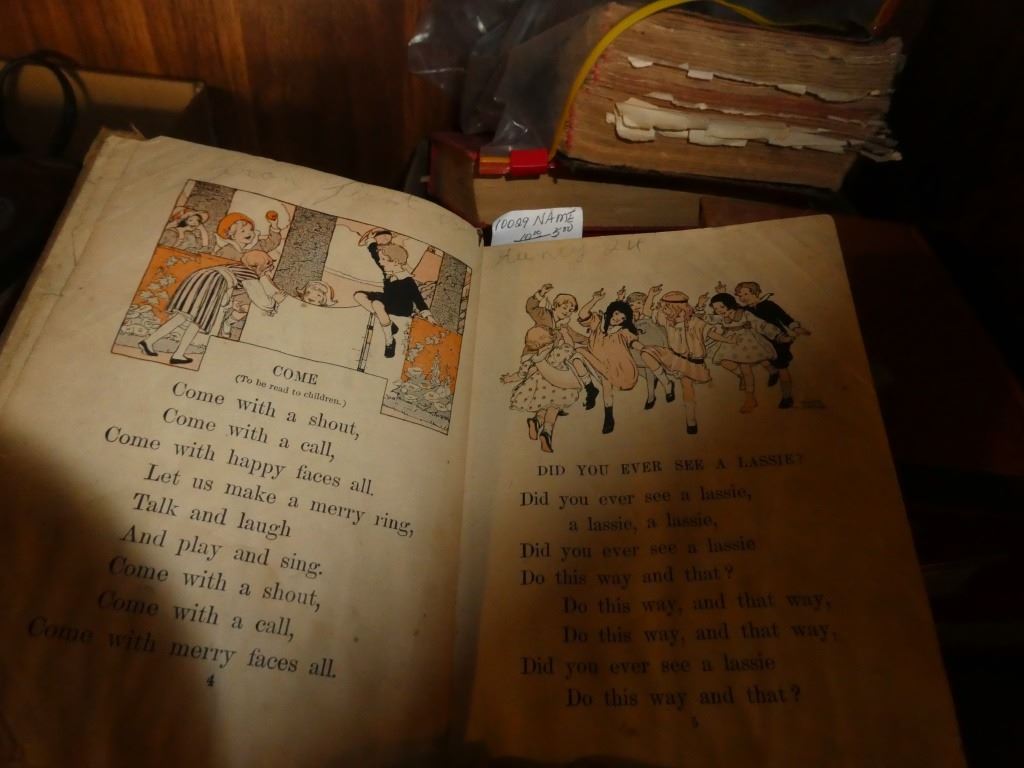 COME
(To be read to children.)
Come with a shout,
Come with a call,
Come with happy faces all.
Let us make a merry ring,
Talk and laugh
And play and sing.
Come with a shout,
Come with a call,
Come with merry faces all.
4
10029 NAME
5.00
DID YOU EVER SEE A LASSIE?
Did you ever see a lassie,
a lassie, a lassie,
Did you ever see a lassie
Do this way and that?
Do this way, and that way,
Do this way, and that way,
Did you ever see a lassie
Do this way and that?
5